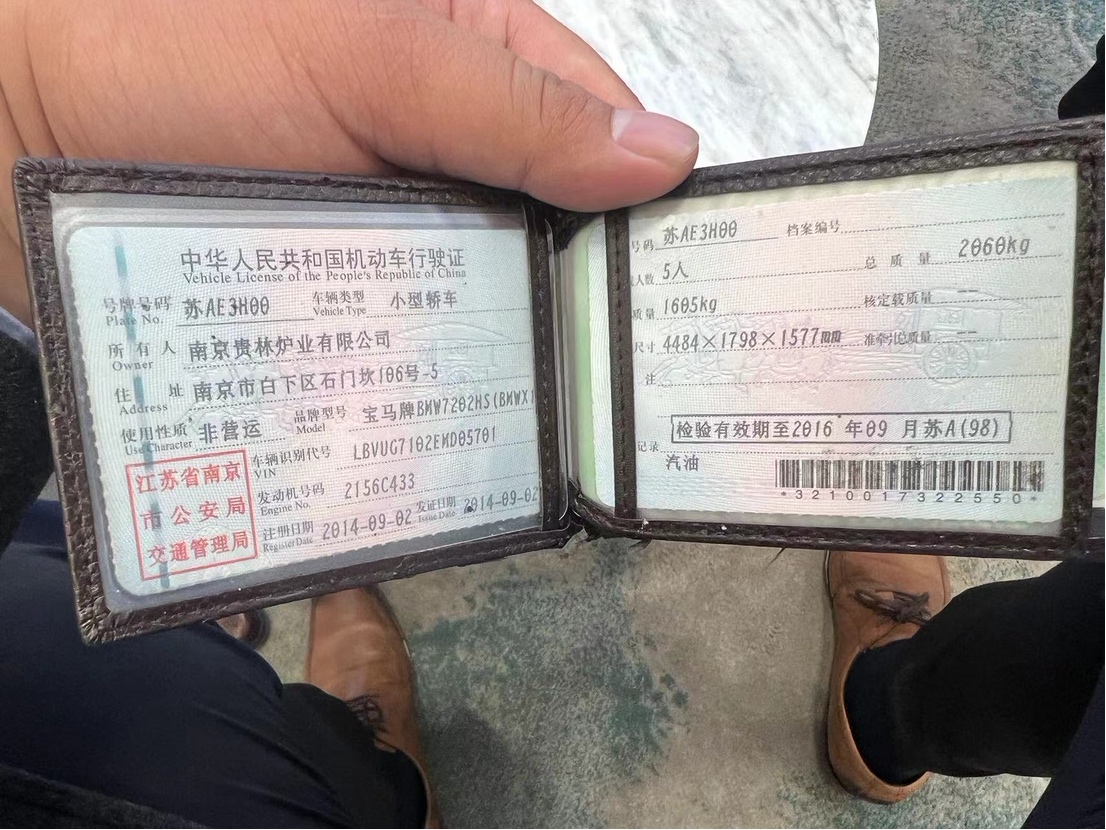 中华人民共和国机动车行驶证
Vehicle License of the People's Republic of China
号牌号码 苏AE3H00 车辆类型 小型轿车
Plate No. Vehicle Type
所有人 南京贵林炉业有限公司
Owner
住址 南京市白下区石门坎106号-5
Address
使用性质 非营运 品牌型号 宝马牌BMW7202HS(BMWX1
Use Character Model
江苏省南京
市公安局
交通管理局
车辆识别代号 LBVUG7102EMD05701
VIN
发动机号码 2156C433
Engine No.
注册日期 2014-09-02 发证日期 2014-09-02
Register Date Issue Date
号码 苏AE3H00 档案编号
人数 5人 总质量 2060kg
质量 1605kg 核定载质量 --
尺寸 4484×1798×1577mm 准牵引总质量 --
注
记录 检验有效期至2016年09月苏A(98)
汽油
*3210017322550*